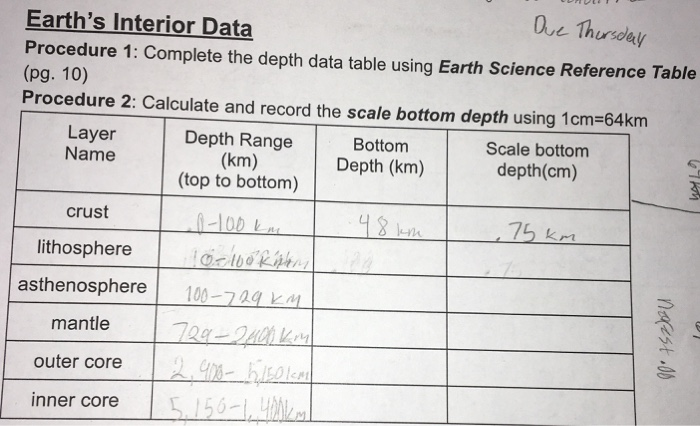 Earth's Interior Data
Due Thursday
Procedure 1: Complete the depth data table using Earth Science Reference Table
(pg. 10)
Procedure 2: Calculate and record the scale bottom depth using 1cm=64km
Layer Name Depth Range (km) (top to bottom) Bottom Depth (km) Scale bottom depth(cm)
crust 0-100 km 48 km .75 km
lithosphere
asthenosphere 100-729 KM
mantle 729-
outer core
inner core
nearest .00